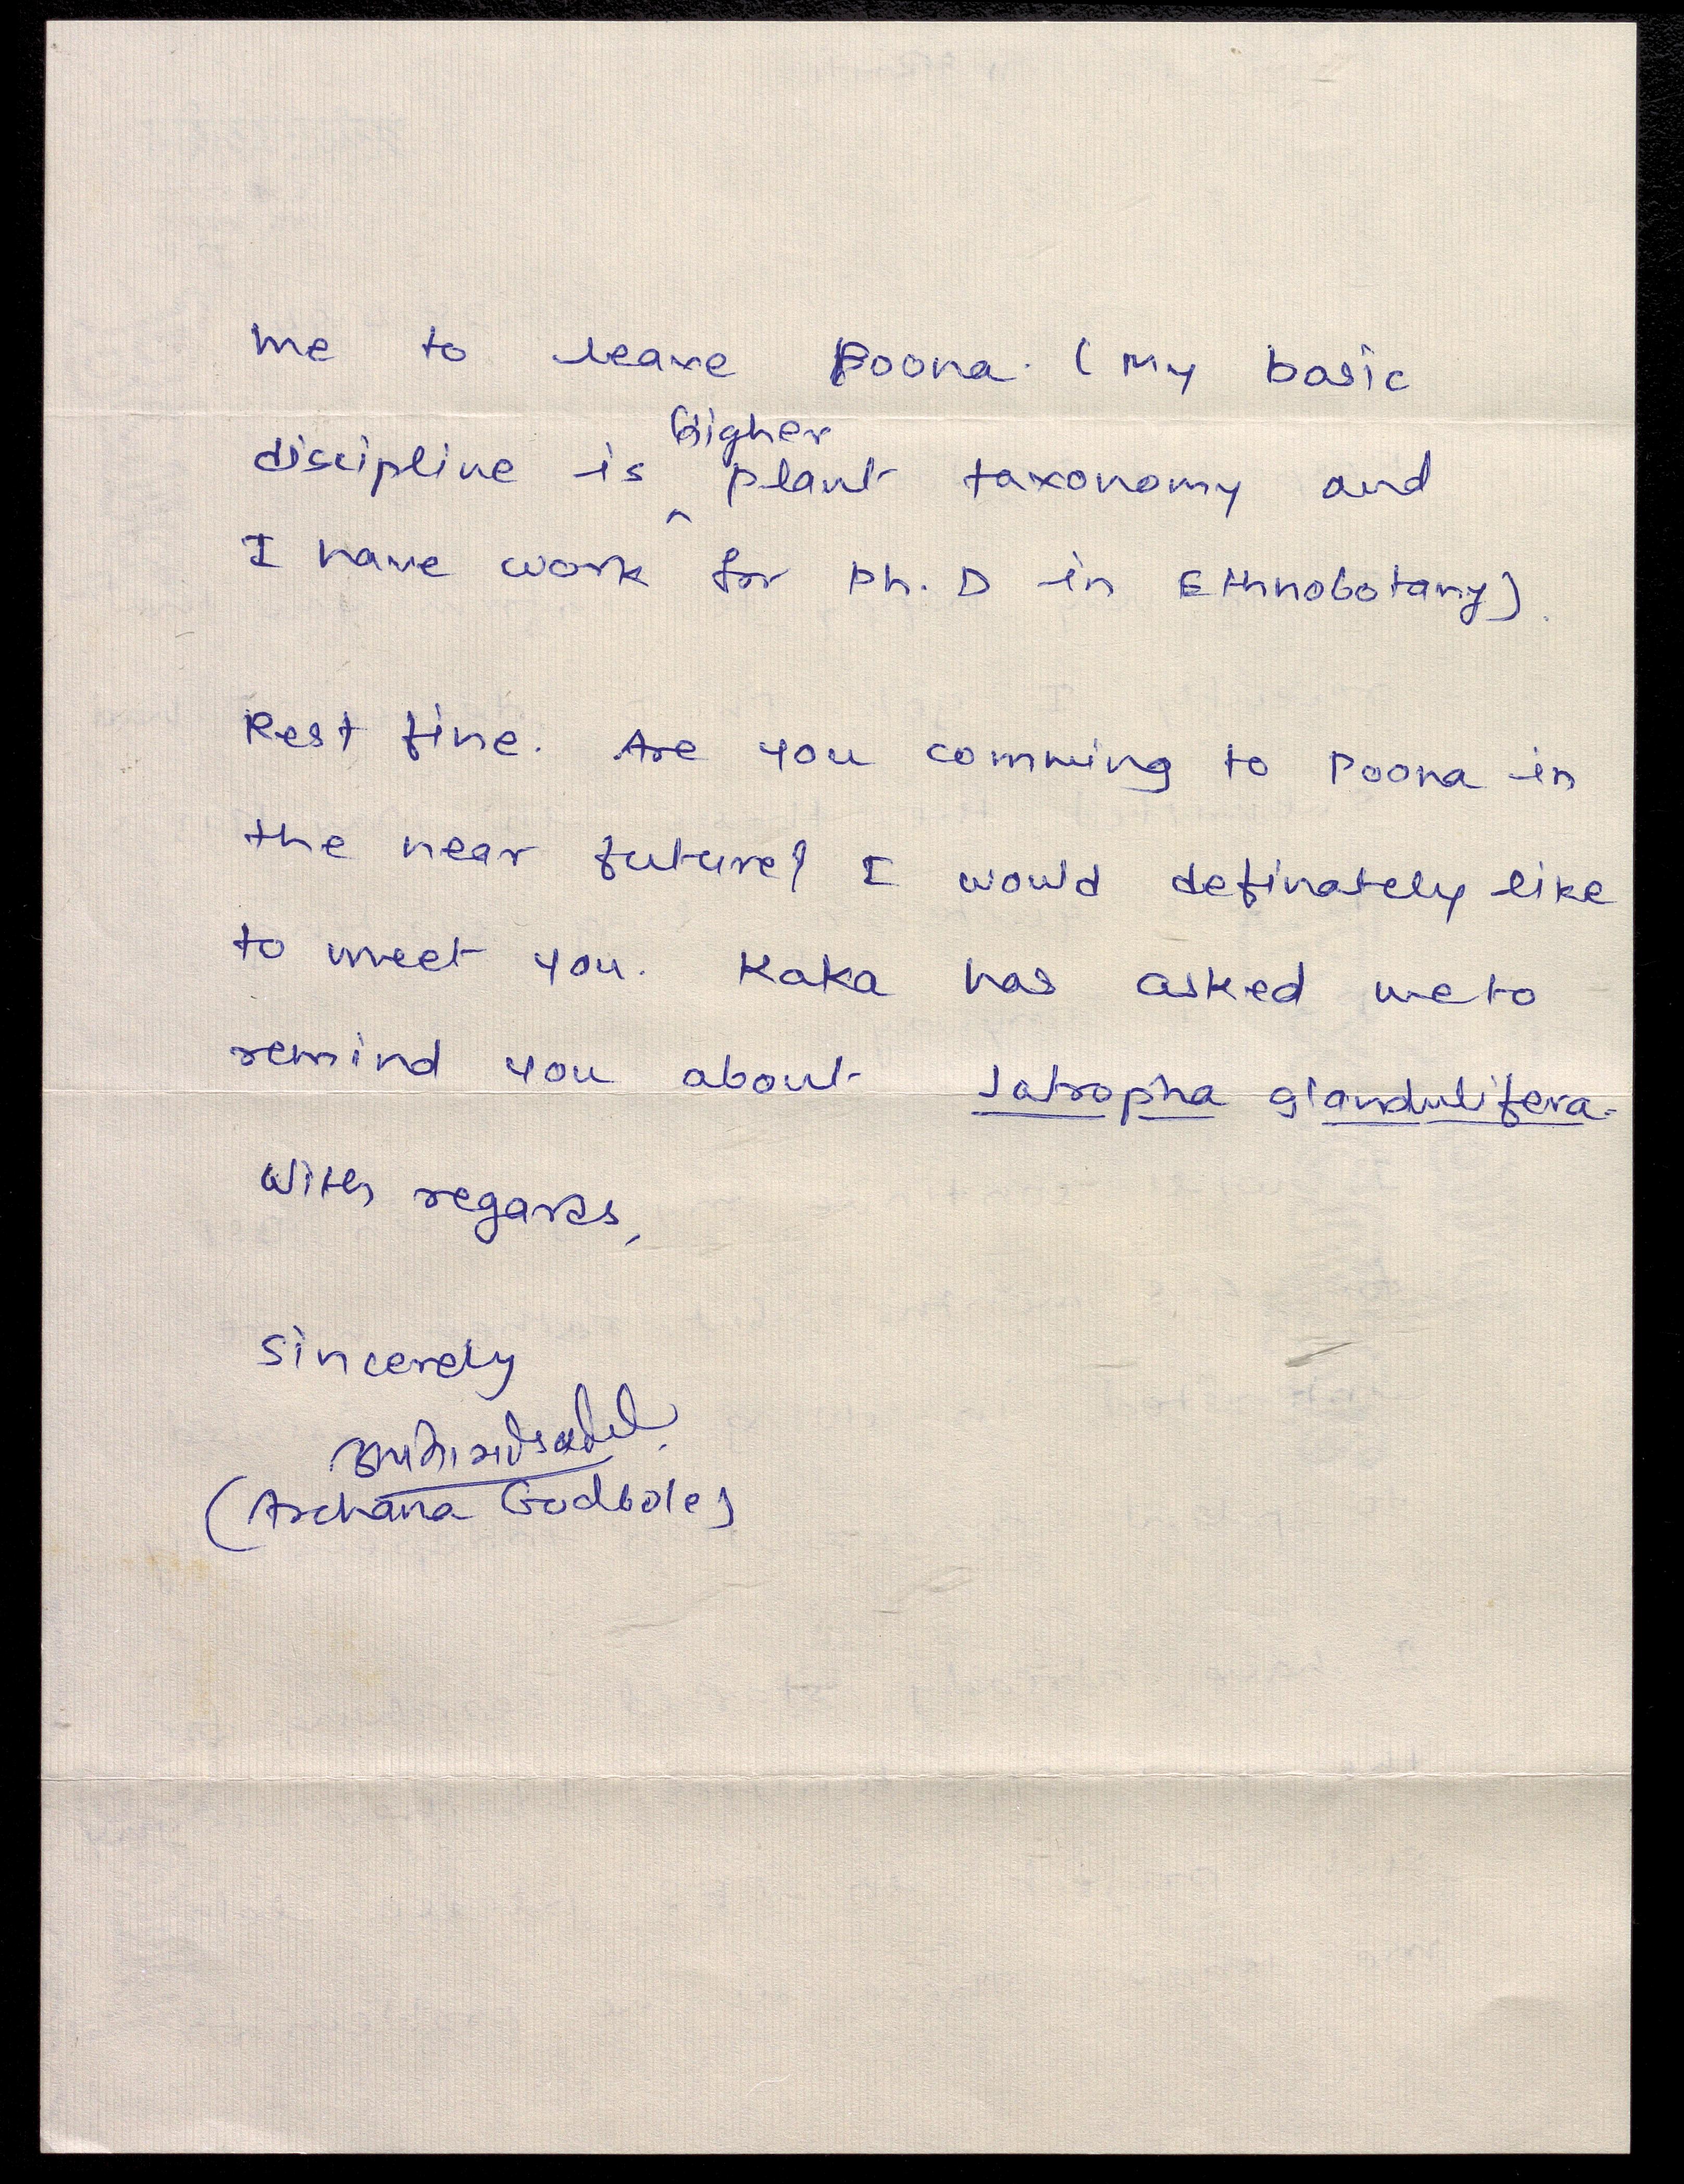 me to leave Poona. (My basic
Higher
discipline is ^ plant taxonomy and
I have work for Ph. D in Ethnobotany).
Rest fine. Are you comming to Poona in
the near future? I would definately like
to meet you. Kaka has asked me to
remind you about Jatropha glandulifera.
With regards,
Sincerely
(Archana Godbole)